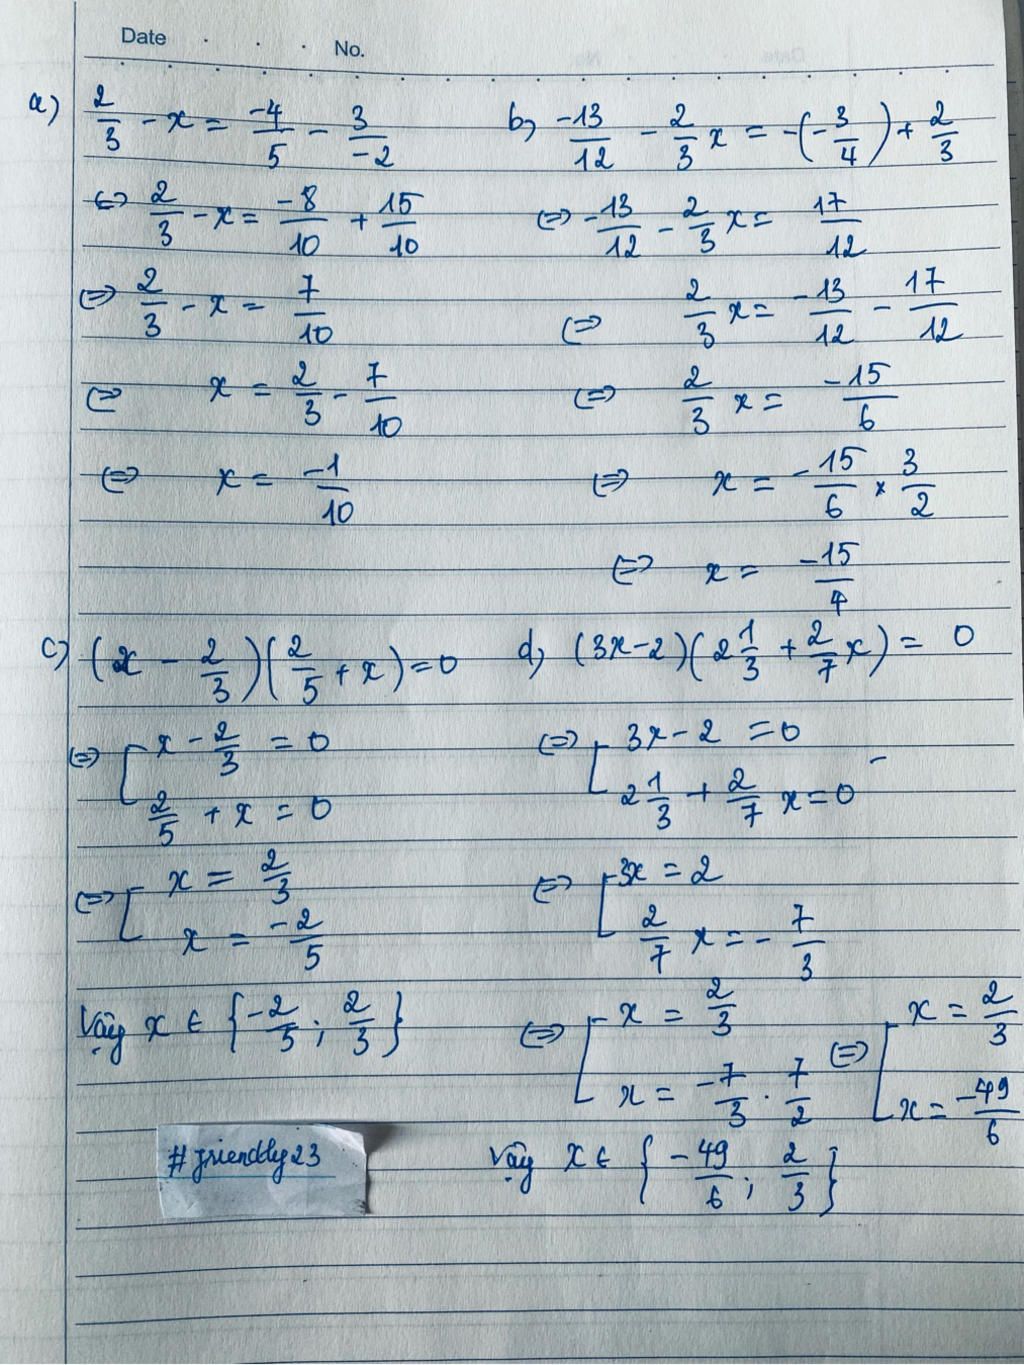 Date . . . No.
a) 2/3 - x = -4/5 - 3/-2
⇔ 2/3 - x = -8/10 + 15/10
⇔ 2/3 - x = 7/10
⇔ x = 2/3 - 7/10
⇔ x = -1/10
b) -13/12 - 2/3 x = -(-3/4) + 2/3
⇔ -13/12 - 2/3 x = 17/12
⇔ 2/3 x = -13/12 - 17/12
⇔ 2/3 x = -15/6
⇔ x = -15/6 × 3/2
⇔ x = -15/4
c) (x - 2/3)(2/5 + x) = 0
⇔ [ x - 2/3 = 0
2/5 + x = 0
⇔ [ x = 2/3
x = -2/5
Vậy x ∈ {-2/5; 2/3}
d) (3x-2)(2 1/3 + 2/7 x) = 0
⇔ [ 3x - 2 = 0
2 1/3 + 2/7 x = 0
⇔ [ 3x = 2
2/7 x = -7/3
⇔ [ x = 2/3 ⇔ [ x = 2/3
x = -7/3 . 7/2 x = -49/6
Vậy x ∈ {-49/6; 2/3}
#friendly23